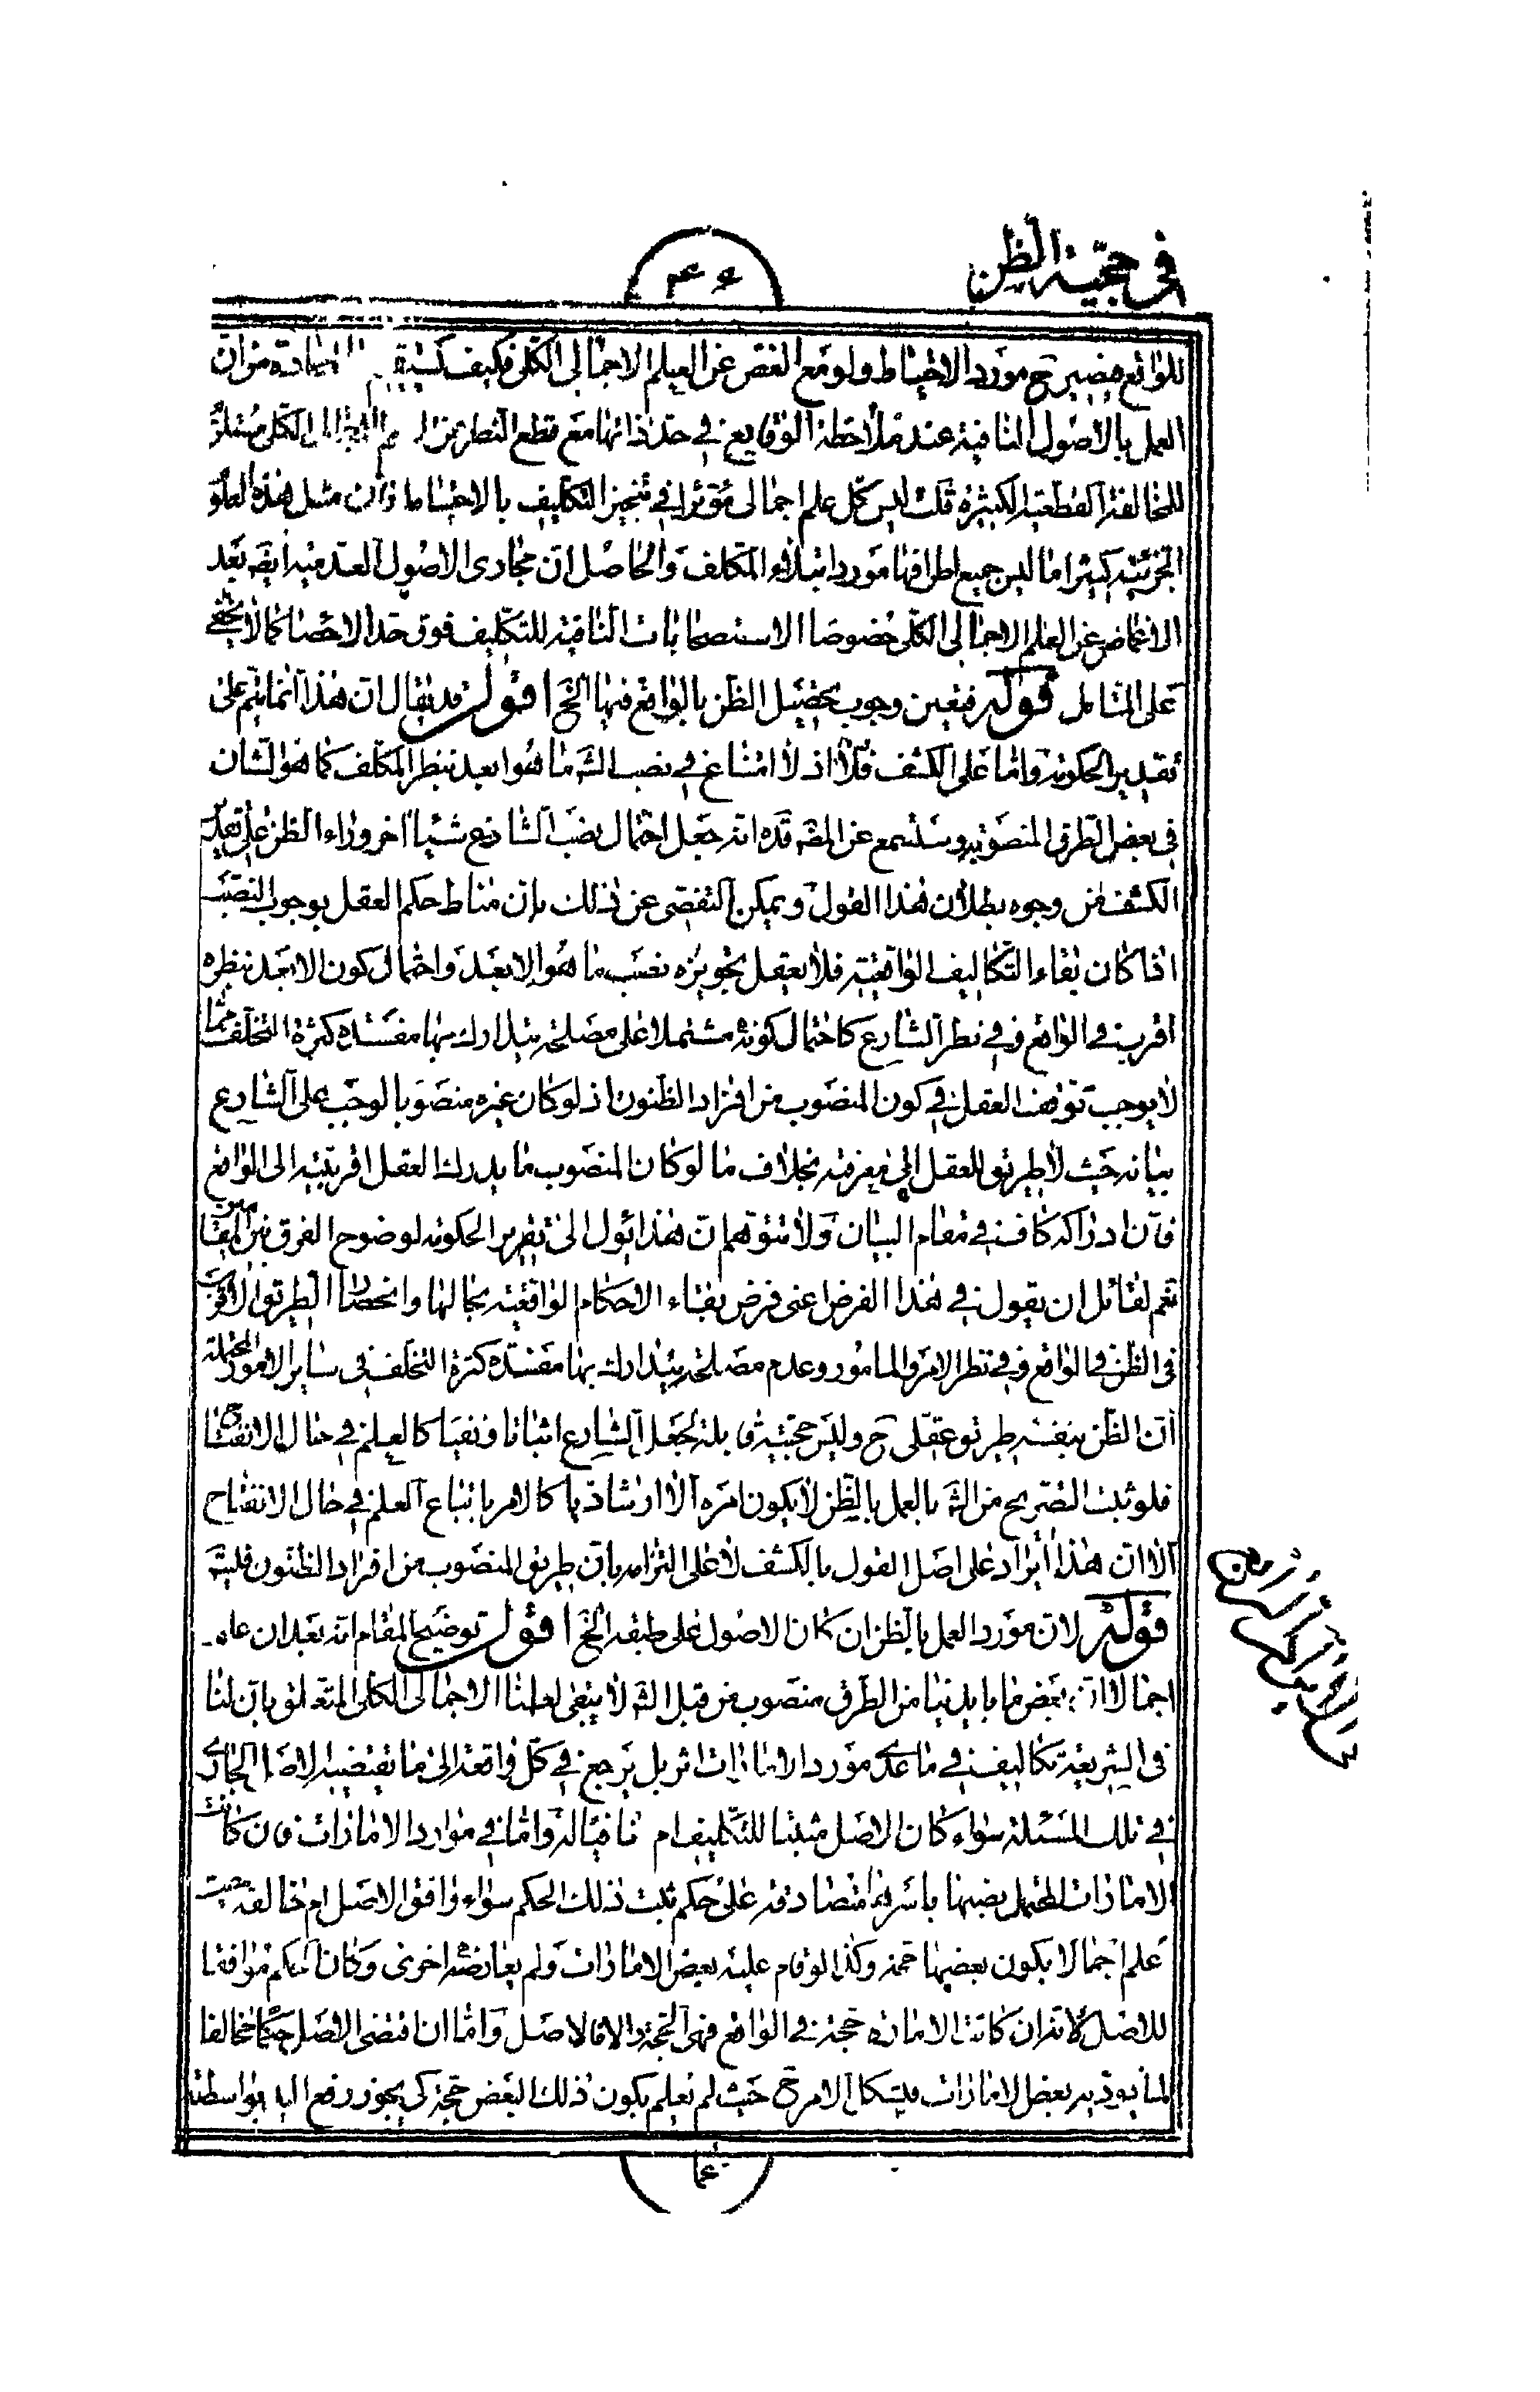 في حجيّة الظن
٤٦
للوقائع فيصير ح مورد الاحتياط ولو مع الغض عن العلم الاجمالى الكلى فكيف من انّ
العمل بالاصول النافية عند ملاحظة الوقايع في حدّ ذاتها مع قطع النظر عن الكلى مستلزم
للمخالفة القطعية الكثيرة قلت ليس كل علم اجمالى مؤثرا في تنجيز التكليف بالاحتياط فان مثل هذه العلو
الجزئية كثيرا ما ليس جميع اطرافها مورد ابتلاء المكلف والحاصل ان مجارى الاصول العدمية ايضه بعد
الاغماض عن العلم الاجمالى الكلى خصوصا الاستصحابات النافية للتكليف فوق حد الاحصا كما لا يخفى
على المتامل قوله فتعين وجوب تحصيل الظن بالواقع فيها الخ اقول قد يقال ان هذا انما يتم على
تقدير الحكومة واما على الكشف فلا اذ لا امتناع في نصب الشه ما هو ابعد بنظر المكلف كما هو الشان
في بعض الطرق المنصوبة وستسمع عن المصه قده انه جعل احتمال نصب الشارع شيئا اخر وراء الظن على تقدير
الكشف من وجوه بطلان هذا القول ويمكن التفصى عن ذلك بان مناط حكم العقل بوجوب النصب
اذا كان بقاء التكاليف الواقعية فلا يعقل تجويزه نصب ما هو الابعد واحتمال كون الابعد بنظره
اقرب في الواقع وفي نظر الشارع كاحتمال كونه مشتملا على مصلحة يتدارك بها مفسدة كثرة التخلف مما
لا يوجب توقف العقل في كون المنصوب من افراد الظنون اذ لو كان غيره منصوبا لوجب على الشارع
بيانه حيث لا طريق للعقل الى معرفته بخلاف ما لو كان المنصوب ما يدرك العقل اقربيته الى الواقع
فان ادراكه كاف في مقام البيان ولا تتوهم ان هذا يؤل الى تقرير الحكومة لوضوح الفرق بين المقامين
نعم لقائل ان يقول في هذا الفرض اعنى فرض بقاء الاحكام الواقعية بحالها وانحصار الطريق الاقرب
في الظن في الواقع وفي نظر الامر والمامور وعدم مصلحة يتدارك بها مفسدة كثرة التخلف في ساير الامور المحتملة
ان الظن بنفسه طريق عقلى ح وليس حجيته قابلة لجعل الشارع اثباتا ونفيا كالعلم في حال الانفتاح
فلو ثبت التصريح من الشه بالعمل بالظن لا يكون امره الا ارشاديا كالامر باتباع العلم في حال الانفتاح
الا ان هذا ايراد على اصل القول بالكشف لا على التزامه بان طريق المنصوب من افراد الظنون فليته
قوله لان مورد العمل بالظن ان كان الاصول على طبقه الخ اقول توضيح المقام انه بعد ان علم
اجمالا ان بعض ما بايدينا من الطرق منصوب من قبل الشه لا يبقى لعلمنا الاجمالى الكلى المتعلق بان لنا
في الشريعة تكاليف في ما عدى مورد الامارات اثر بل يرجع في كل واقعة الى ما يقتضيه الاصل الجارى
في تلك المسئلة سواء كان الاصل مثبتا للتكليف ام نافيا له واما في موارد الامارات فان كانت
الامارات المحتمل نصبها باسرها متصادقة على حكم ثبت ذلك الحكم سواء وافق الاصل ام خالفه حيث
علم اجمالا بكون بعضها حجة وكذا لو قام عليه بعض الامارات ولم يعارضه اخرى وكان الحكم موافقا
للاصل لانه ان كانت الامارة حجة في الواقع فهى الحجة والا فالاصل واما ان اقتضى الاصل حكما مخالفا
لما يؤديه بعض الامارات فيشكل الامر ح حيث لم نعلم بكون ذلك البعض حجة كى يجوز رفع اليد بواسطته
عما